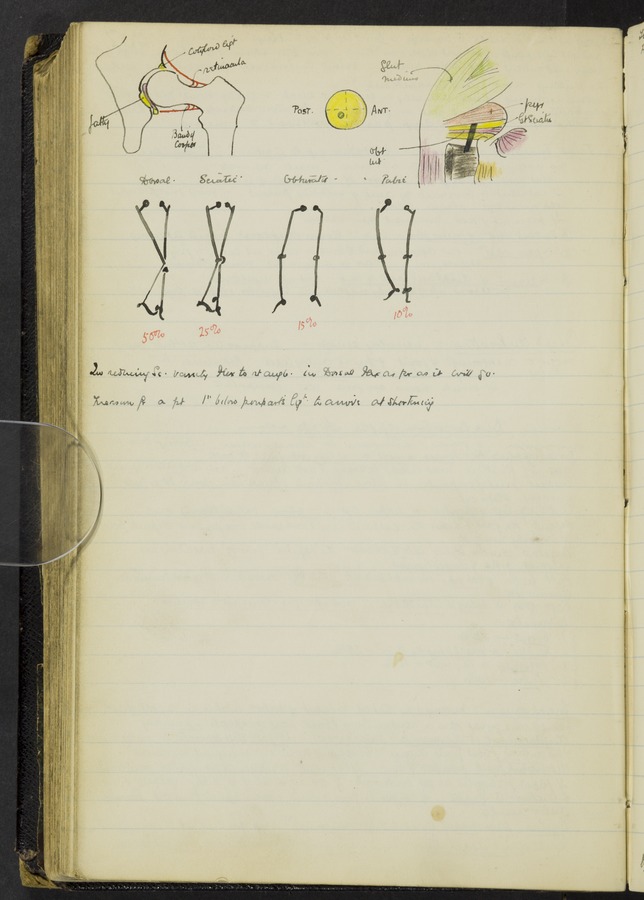 Cotyloid ligt
retinacula
fatty
Band of
Cooper
POST.
ANT.
Glut
medius
pyr
Gt Sciatic
obt
int
Dorsal. Sciatic. Obturator. Pubic
50% 25% 15% 10%
In reducing Sc. variety flex to rt angle. in Dorsal flex as far as it will go.
Measure fr a pt 1" below poupart's ligt to arrive at shortening